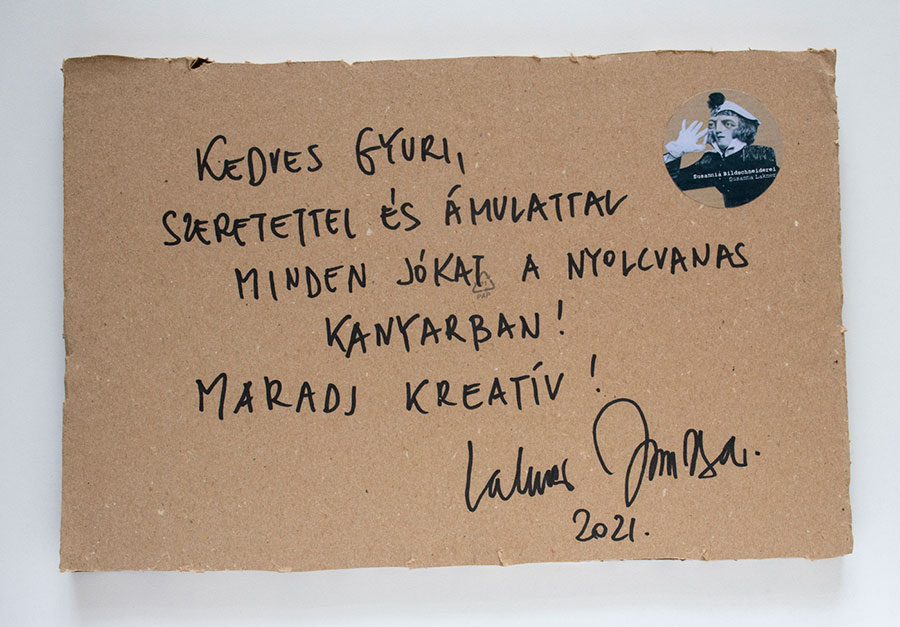 KEDVES GYURI,
SZERETETTEL ÉS ÁMULATTAL
MINDEN JÓKAT A NYOLCVANAS
KANYARBAN!
MARADJ KREATÍV!
Lakner Zsuzsa.
2021.
Susannia Bildschneiderei
Susanna Lakner
PAP